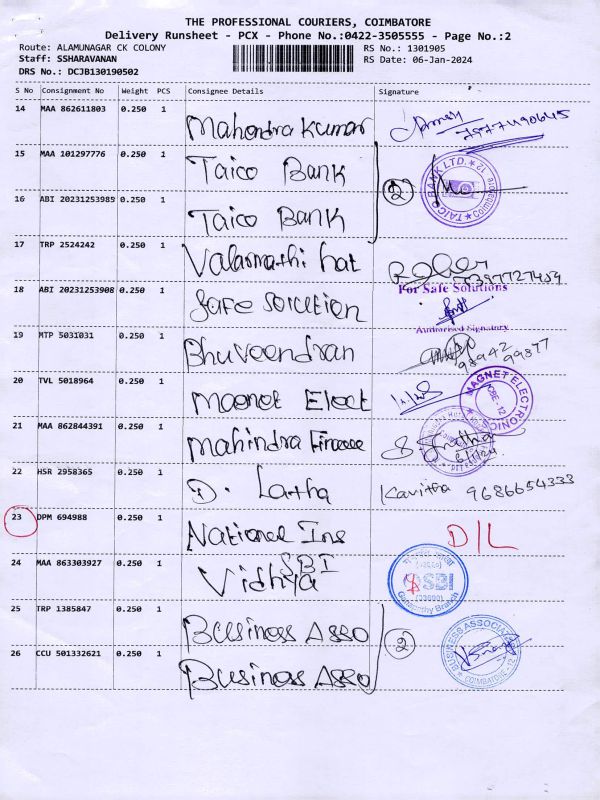 THE PROFESSIONAL COURIERS, COIMBATORE
Delivery Runsheet - PCX - Phone No.:0422-3505555 - Page No.:2
Route: ALAMUNAGAR CK COLONY
RS No.: 1301905
Staff: SSHARAVANAN
RS Date: 06-Jan-2024
DRS No.: DCJB130190502
S No Consignment No Weight PCS Consignee Details Signature
14 MAA 862611803 0.250 1 Mahendra Kumar
15 MAA 101297776 0.250 1 Taico Bank
16 ABI 20231253989 0.250 1 Taico Bank
2
TAICO BANK LTD. Coimbatore 12
17 TRP 2524242 0.250 1 Valarmathi hat
18 ABI 20231253908 0.250 1 Safe Solution
For Safe Solutions
Authorised Signatory
19 MTP 5031031 0.250 1 Bhuveendran
98942 99877
20 TVL 5018964 0.250 1 Magnet Elect
MAGNET ELECTRONICS
21 MAA 862844391 0.250 1 Mahindra Finance
22 HSR 2958365 0.250 1 D. Latha Kavitha 9686654333
23 DPM 694988 0.250 1 National Ins D/L
24 MAA 863303927 0.250 1 Vidhya SBI
SBI
Ganapathy Branch
25 TRP 1385847 0.250 1 Business Asso
26 CCU 501332621 0.250 1 Business Asso
2
BUSINESS ASSOCIATES COIMBATORE-12